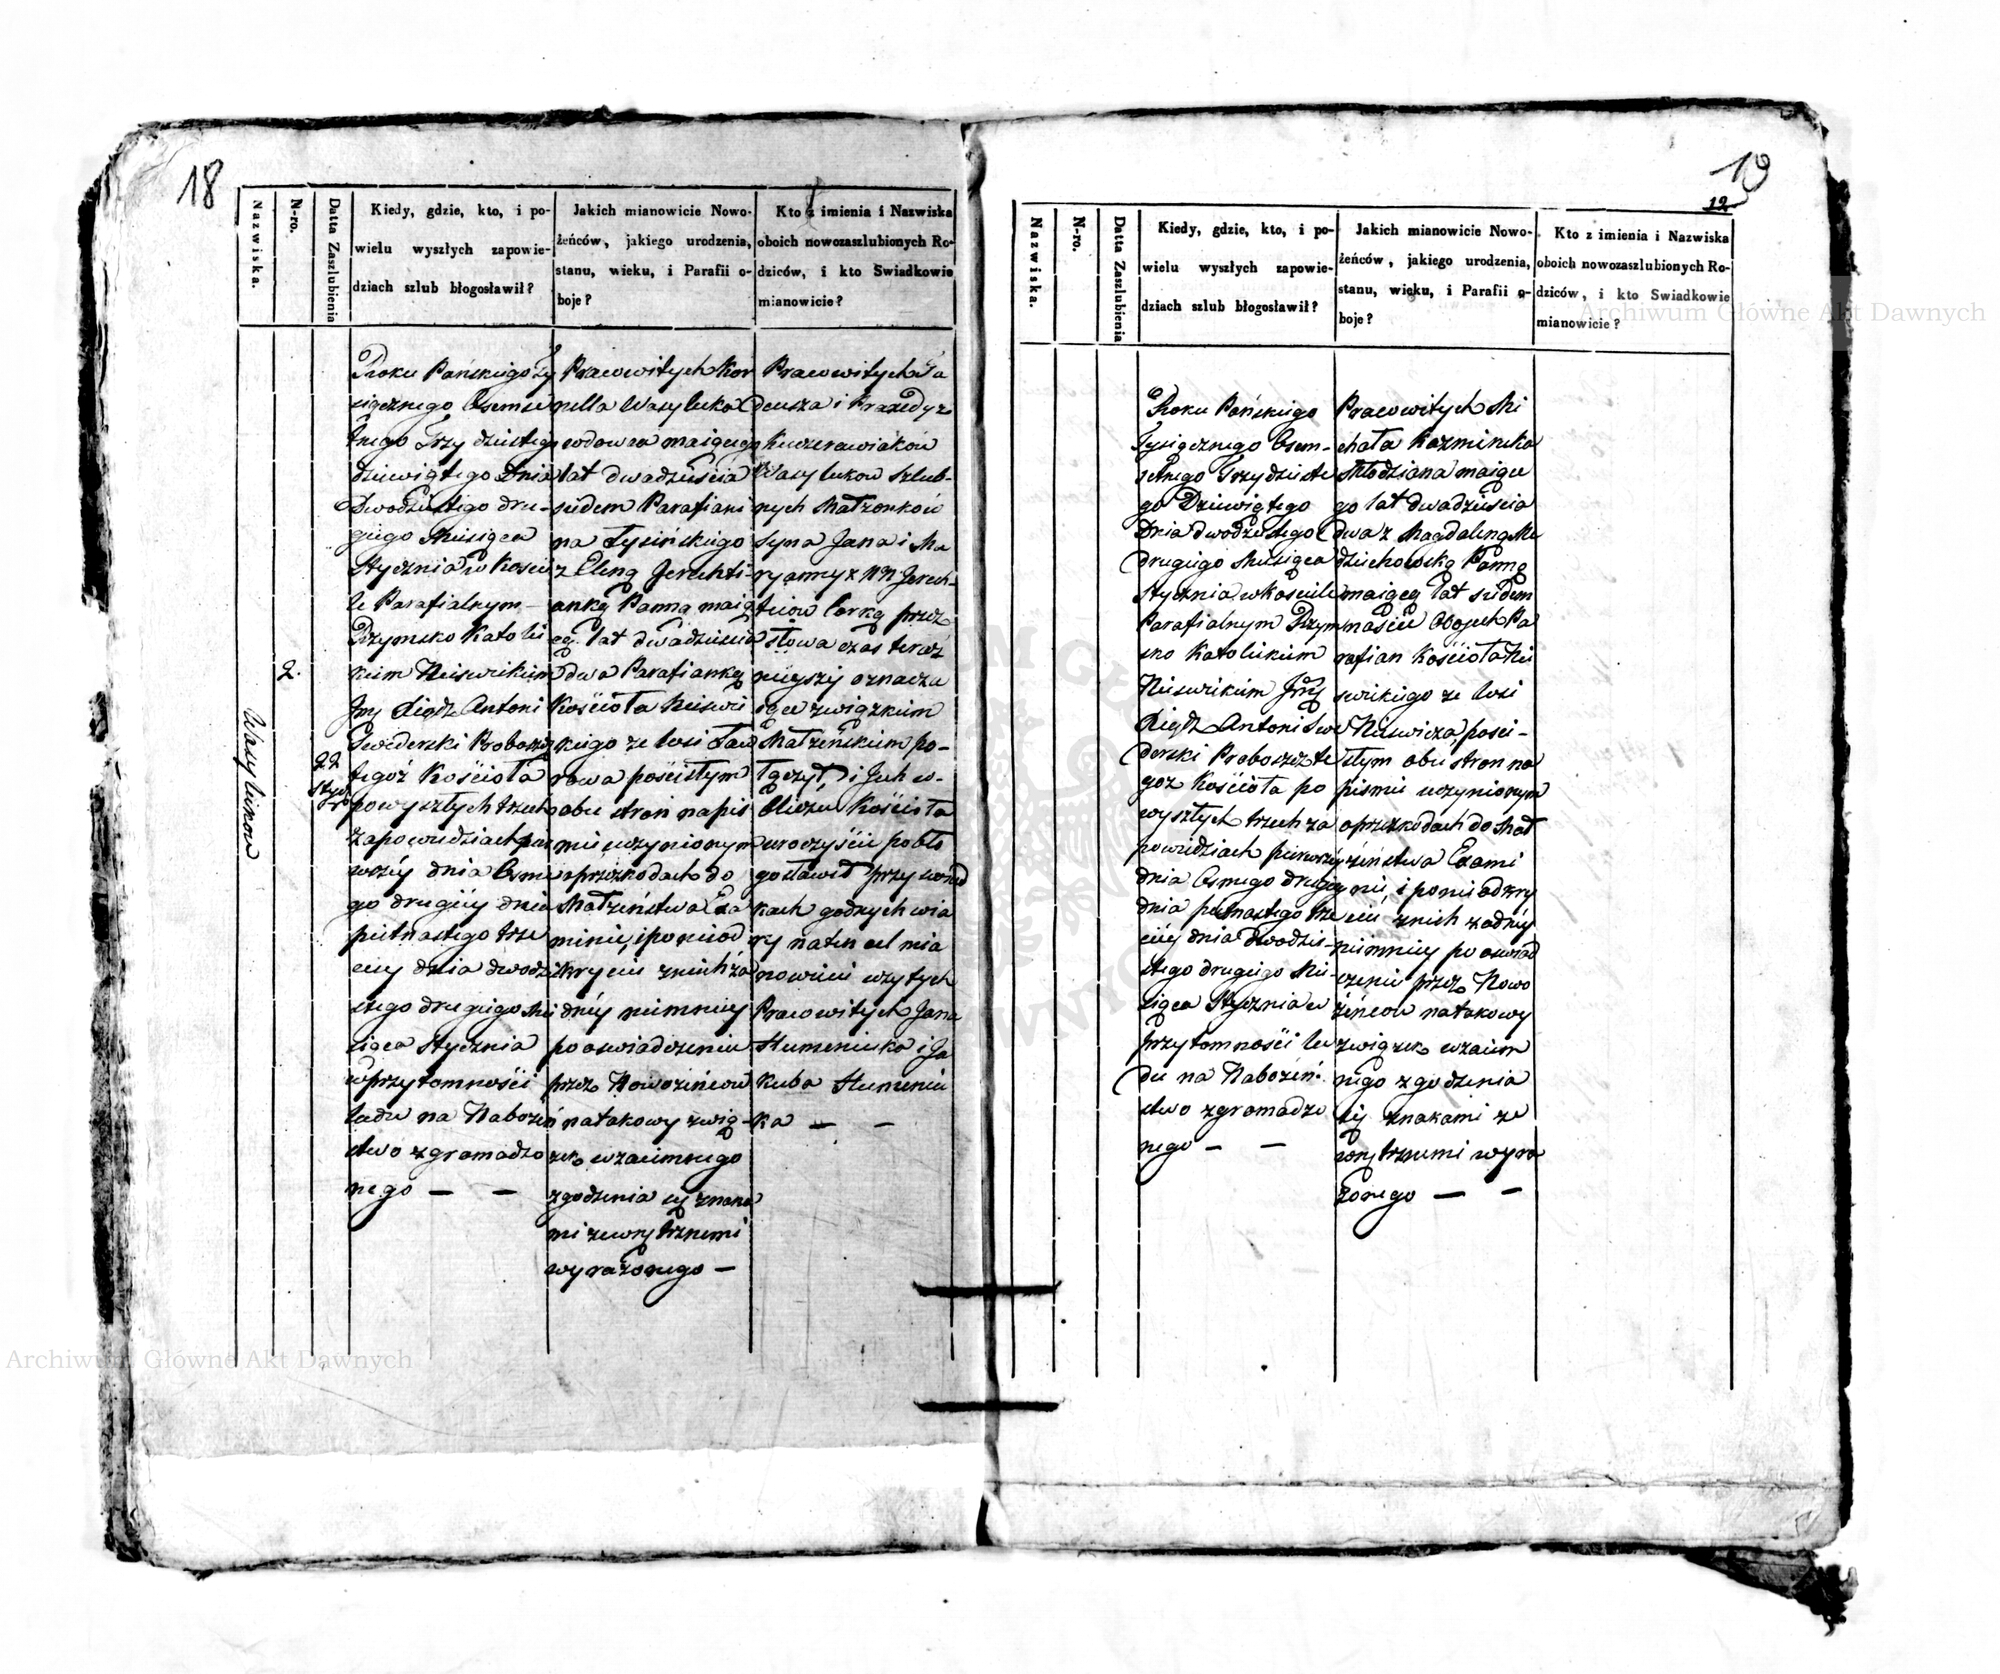 18
Nazwiska.
N-ro.
Datta Zaszlubienia
Kiedy, gdzie, kto, i po-
wielu wyszłych zapowie-
dziach szlub błogosławił?
Jakich mianowicie Nowo-
żeńców, jakiego urodzenia,
stanu, wieku, i Parafii o-
boje?
Kto z imienia i Nazwiska
oboich nowozaszlubionych Ro-
dziców, i kto Swiadkowie
mianowicie?
2.
22
Roku Pańskiego Ty
siącznego Osmse
tnego Trzydziestego
dziewiątego Dnia
Dwodziestego dru-
giego Miesiąca
Stycznia w Koscie
le Parafialnym
Rzymsko Katolic
kim Nieswickim
Jmj Xiądz Antoni
Swiderski Proboszcz
tegoż Kościoła
powyszłych trzech
zapowiedziach pier
wszéy dnia Osme
go drugiéy dnia
pietnastego trze
ciey dnia dwodzie
stego drugiego Mie
siąca Stycznia
w przytomności
ludu na Nabożeń
stwo zgromadzo
nego — —
Pracowitych Kor
nella Wasyluka
wdowca maiącego
lat dwadzieścia
siedem Parafiani
na Łysińskiego
z Eleną Jerechti-
anką Panną maią
cą lat dwadziescia
dwa Parafianką
Kościoła Nieswi
ckiego ze wsi Ław
rowa pościsłym
obu stron napis
mie uczynionym
oprzeszkodach do
Małżeństwa Exa
minie, i ponieod
kryciu znich ża
dnéy niemniey
po oswiadczeniu
przez Nowożeńcow
natakowy zwią-
zek wzaiemnego
zgodzenia się znaka
mi zewnętrznemi
wyrażonego —
Pracowitych Ta
deusza i Praxedy z
Kuczerawiaków
Wasylukow Szlub-
nych Małżonków
Syna Jana i Ma
ryanny z NN Jerech-
tiow Corką przez
słowa czas teraź
nieyszy oznacza
iące związkiem
Małżeńskim po-
łączył i Jch w
Obliczu Kościoła
uroczyście pobło
gosławił przy swiad
kach godnych wia
ry naten cel mia
nowicie użytych
Pracowitych Jana
i Ja
kuba
ka — —
19
12
Nazwiska.
N-ro.
Datta Zaszlubienia
Kiedy, gdzie, kto, i po-
wielu wyszłych zapowie-
dziach szlub błogosławił?
Jakich mianowicie Nowo-
żeńców, jakiego urodzenia,
stanu, wieku, i Parafii o-
boje?
Kto z imienia i Nazwiska
oboich nowozaszlubionych Ro-
dziców, i kto Swiadkowie
mianowicie?
Roku Pańskiego
Tysiącznego Osm-
setnego Trzydzieste
go Dziewiątego
Dnia dwodziestego
drugiego Miesiąca
Stycznia w Kościele
Parafialnym Rzym
sko Katolickim
Nieswickim Jmj
Xiądz Antoni Swi
derski Proboszcz te
goż Kościoła po
wyszłych trzech za
powiedziach pierwszéy
dnia Osmego drugiey
dnia pietnastego trze
ciéy dnia dwodzie-
stego drugiego Mie-
siąca Stycznia w
przytomności lu
du na Nabożeń.
stwo zgromadzo
nego — —
Pracowitych Mi
chała Kazmiruka
Młodziana maiące
go lat dwadziescia
dwa z Magdaleną Me
dzichowską Panną
maiącą lat siedem
naście Oboych Pa
rafian Kościoła Nie
swickiego ze wsi
Nieswicza, pości-
słym obu stron na
pismie uczynionym
oprzeszkodach do Mał
żeństwa Exami
nie, i ponieodkry
ciu znich żadnéy
niemniey po oswiad
czeniu przez Nowo
żeńcow natakowy
związek wzaiem
nego zgodzenia
się znakami ze
wnętrznemi wyra
żonego — —
Archiwum Główne Akt Dawnych
Archiwum Główne Akt Dawnych